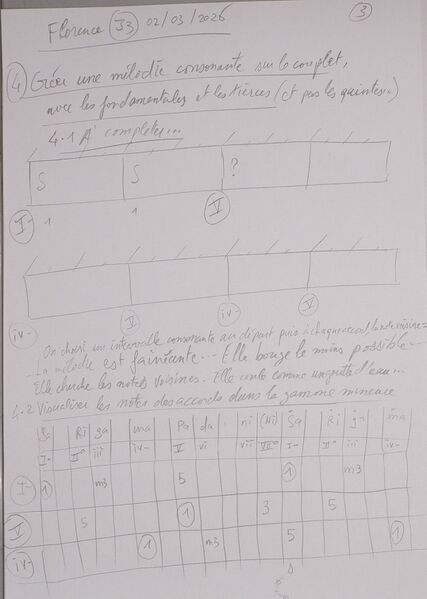 Florence J3 02/03/2026
3
4 Créer une mélodie consonante sur le couplet,
avec les fondamentales et les tierces (et pas les quintes..)
4.1 A completer...
S S ?
I- 1 1 V
iv- V iv- V
On choisi un intervalle consonante au départ puis à chaque accord
- La mélodie est fainéante... Elle bouge le moins possible...
Elle cherche les notes voisines. Elle coule comme une goutte d'eau...
4.2 Visualiser les notes des accords dans la gamme mineure
Sa Ri ga ma Pa da ni (Ni) Sa Ri ga ma
I- II° iii iv- V vi vii VII° I- II° iii iv-
I- 1 m3 5 1 m3
V 5 1 3 5
iv- 1 m3 5 1